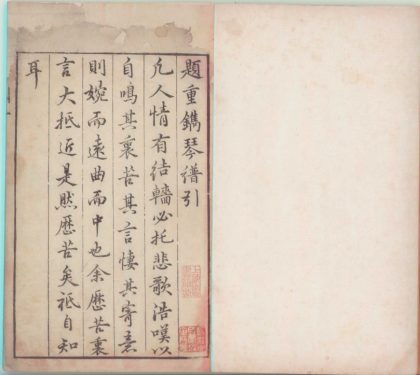 題重鐫琴譜引
凡人情有結轖必托悲歌浩嘆以
自鳴其衷苦其言悽其寄意
則婉而遠曲而中也余歷苦衷
言大抵近是然歷苦矣祗自知
耳